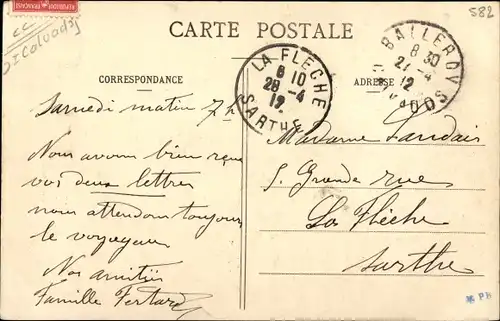 582
RÉPUBLIQUE FRANÇAISE
CARTE POSTALE
CORRESPONDANCE
ADRESSE
LA FLECHE
8 10
28 - 4
12
SARTHE
BALLEROY
8 30
27 - 4
12
CALVADOS
Samedi matin 7h
Nous avons bien reçu
vos deux lettres
nous attendons toujours
le voyageur
Nos amitiés
Famille Fertard
Madame Landais
5. Grande rue
La Flèche
Sarthe